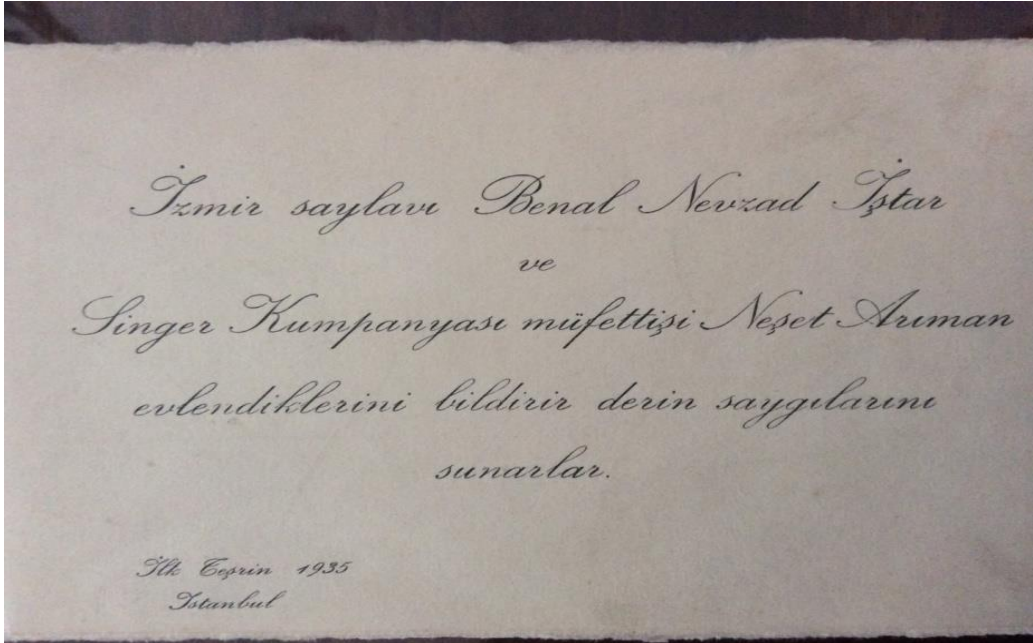 İzmir saylavı Benal Nevzad İştar
ve
Singer Kumpanyası müfettişi Neşet Arıman
evlendiklerini bildirir derin saygılarını
sunarlar.
İlk Teşrin 1935
İstanbul